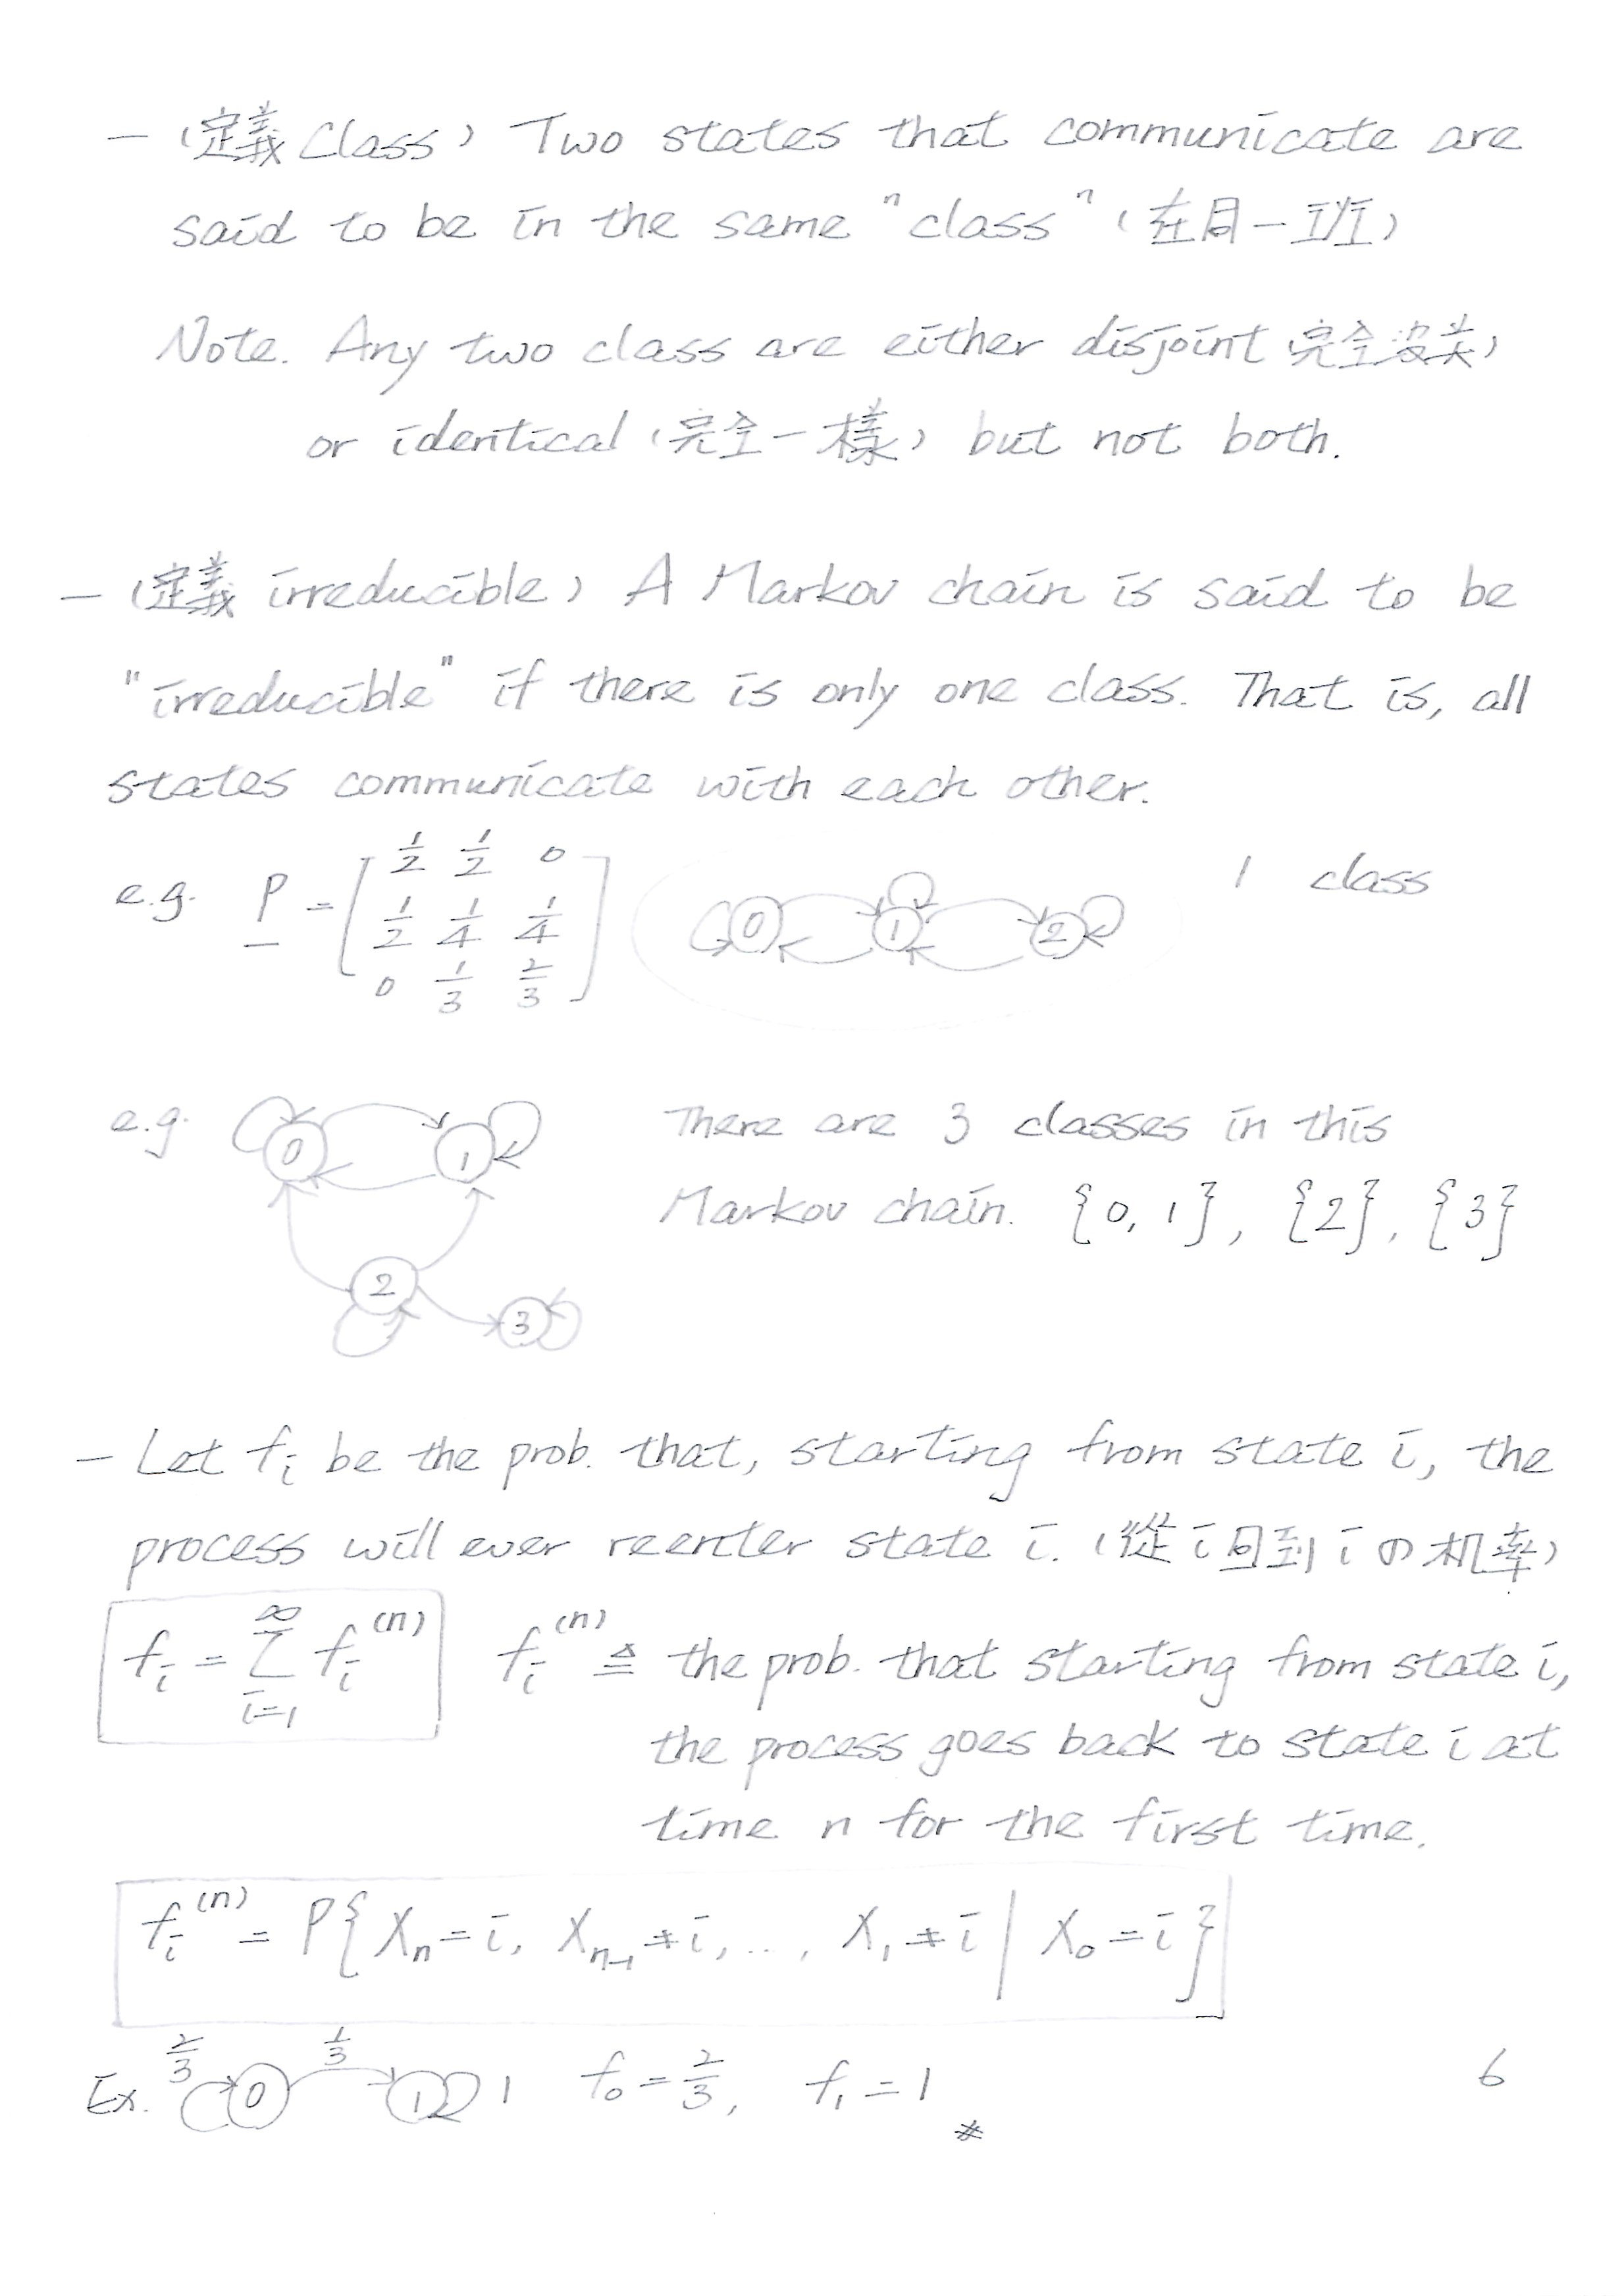 — (定義 Class) Two states that communicate are
said to be in the same "class" (在同一班)
Note. Any two class are either disjoint 完全沒关)
or identical (完全一樣) but not both.
— (定義 irreducible) A Markov chain is said to be
"irreducible" if there is only one class. That is, all
states communicate with each other.
e.g. P = [ 1/2 1/2 0
1/2 1/4 1/4
0 1/3 2/3 ]
0 1 2
1 class
e.g. 0 1
2
3
There are 3 classes in this
Markov chain. {0, 1}, {2}, {3}
— Let f_i be the prob. that, starting from state i, the
process will ever reenter state i. (從 i 回到 i の 机率)
f_i = ∑_{i=1}^{∞} f_i^{(n)} f_i^{(n)} ≜ the prob. that starting from state i,
the process goes back to state i at
time n for the first time.
f_i^{(n)} = P{ X_n = i, X_{n-1} ≠ i, ..., X_1 ≠ i | X_0 = i }
Ex. 2/3 0 1/3 1 1 f_0 = 2/3, f_1 = 1 #
6